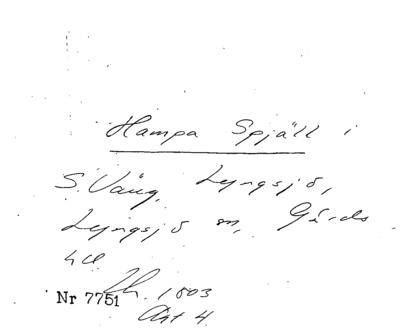 Hampa Spjäll i
S. Väng, Lyngsjö,
Lyngsjö sn, Gärds
hd
Nr 7751 Lh. 1803
Akt 4.